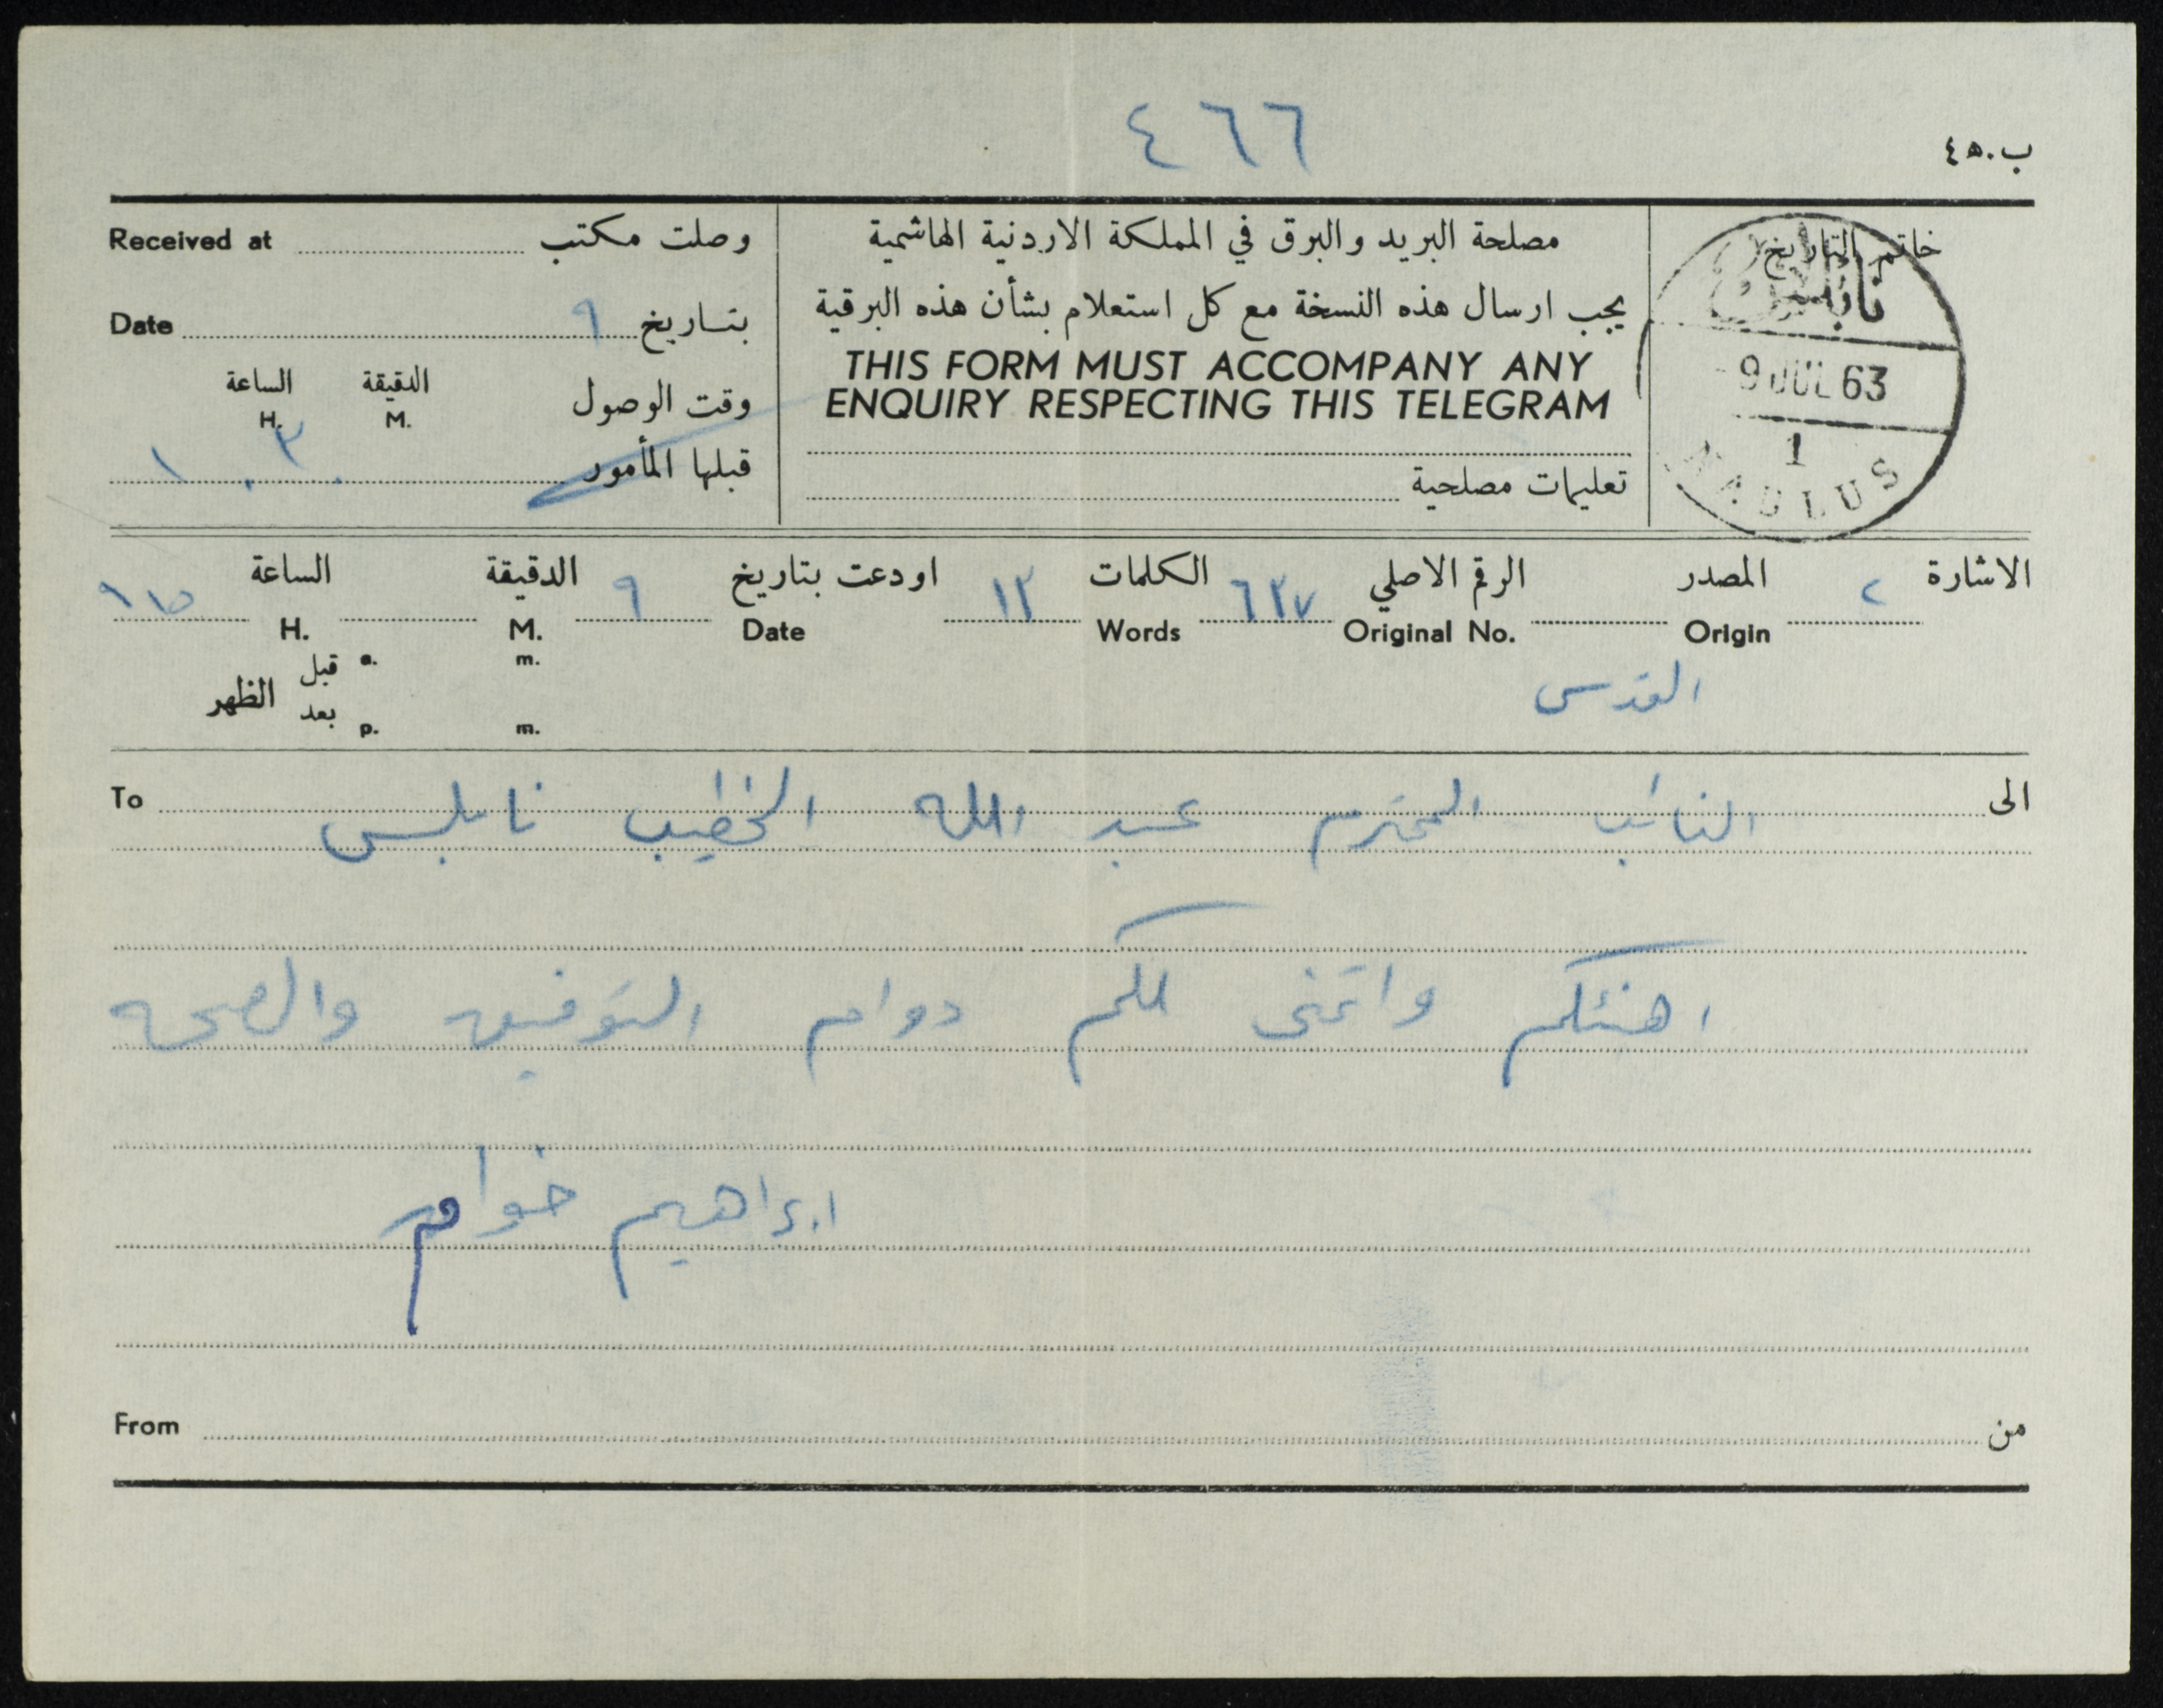 ٤٦٦
ب.٤٥
خاتم التاريخ
نابلس
9 JUL 63
1
NABLUS
مصلحة البريد والبرق في المملكة الاردنية الهاشمية
يجب ارسال هذه النسخة مع كل استعلام بشأن هذه البرقية
THIS FORM MUST ACCOMPANY ANY
ENQUIRY RESPECTING THIS TELEGRAM
تعليمات مصلحية
وصلت مكتب Received at
بتاريخ ٩ Date
وقت الوصول الدقيقة الساعة
M. H.
قبلها المأمور
الاشارة ٢ المصدر الرقم الاصلي ٦٣٧ الكلمات ١٣ اودعت بتاريخ ٩ الدقيقة الساعة ٩١٥
Origin Original No. Words Date M. H.
قبل a. m.
الظهر
بعد p. m.
القدس
الى To
النائب المحترم عبد الله الخطيب نابلس
اهنئكم واتمنى لكم دوام التوفيق والصحه
ابراهيم
من From